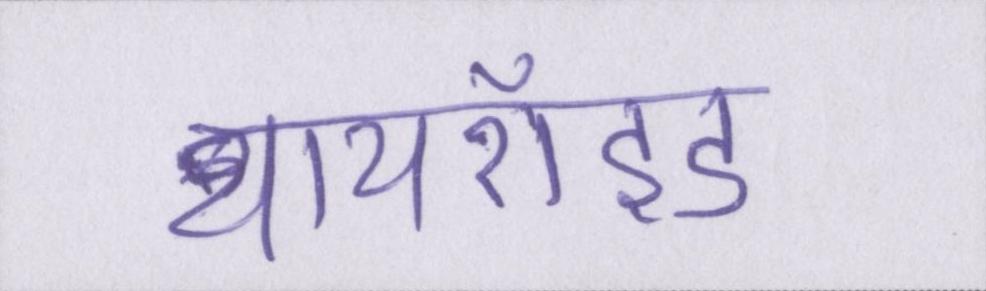 थायरॉइड